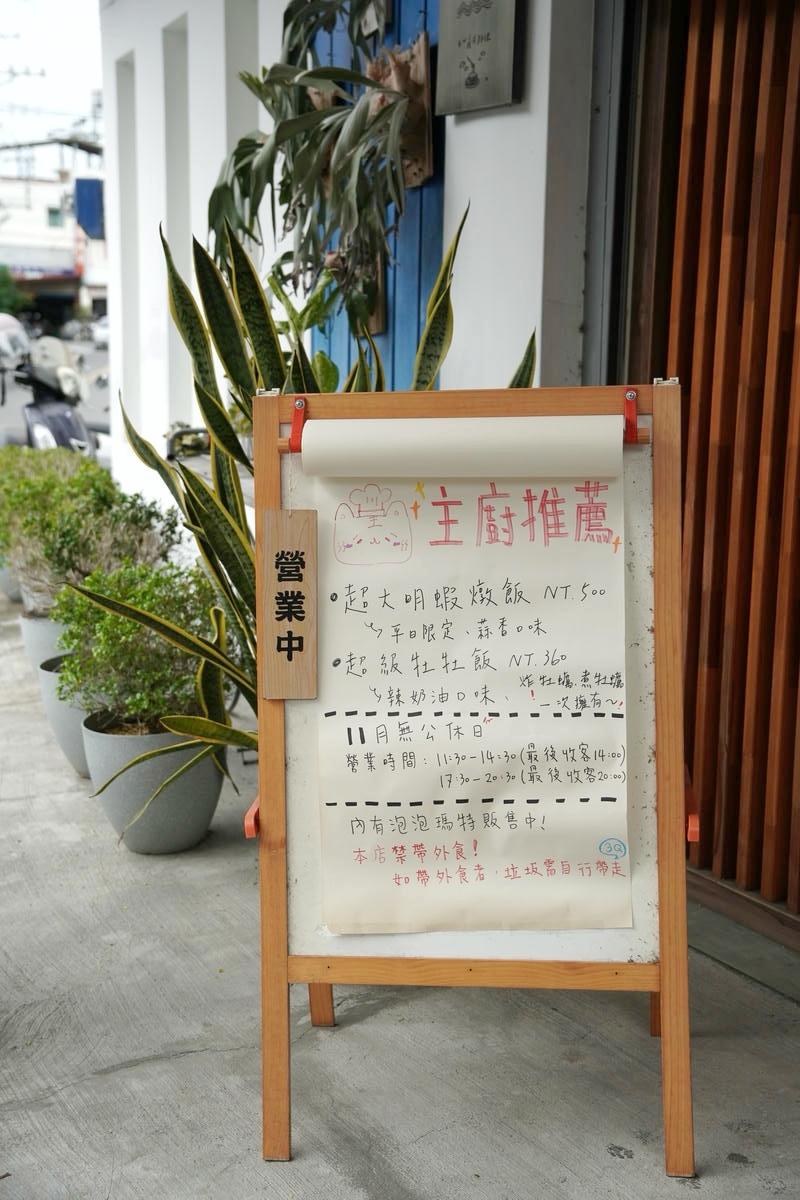 主廚推薦
營業中
•超大明蝦燉飯 NT.500
平日限定、蒜香口味
•超級牡牡飯 NT.360
辣奶油口味、
炸牡蠣、煮牡蠣
一次擁有~!
11月無公休日
營業時間：11:30-14:30(最後收客14:00)
17:30-20:30(最後收客20:00)
內有泡泡瑪特販售中!
本店禁帶外食!
如帶外食者，垃圾需自行帶走
3Q